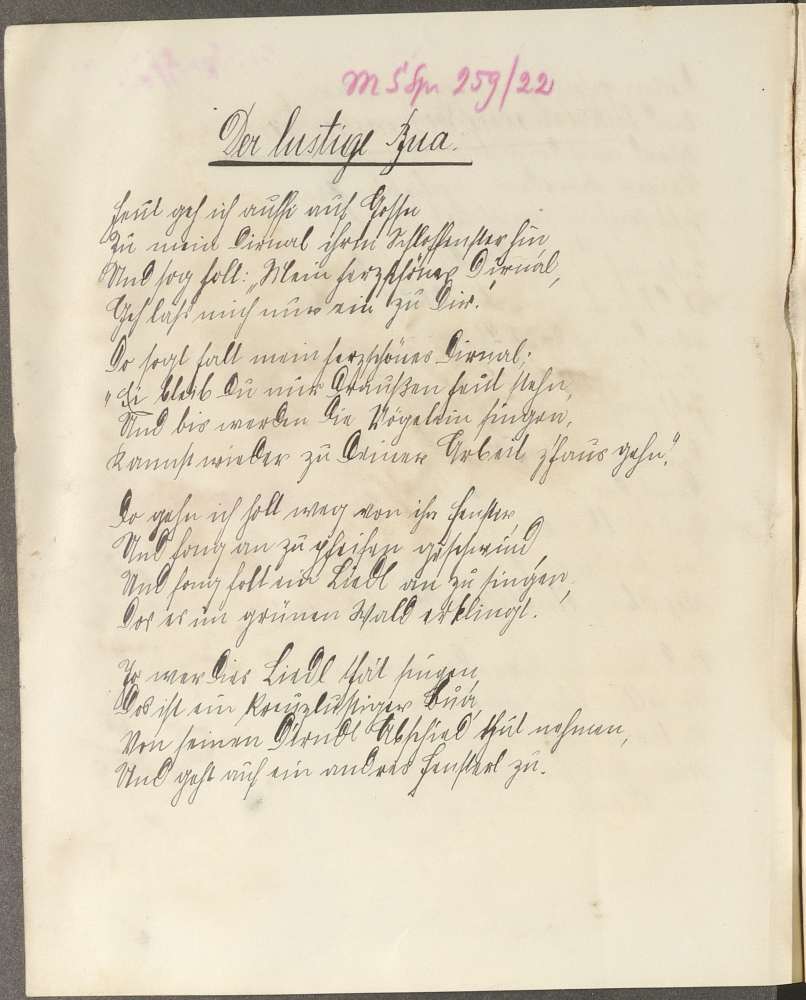 M S Spr 259/22
Der lustige Bua.
Heut geh ich aussi auf Gossn
Zu mein Dirnal ihrm Schloffenster hin,
Und sog holt: „Mein herzschönes Dirnal,
Geh lass mich nur ein zu Dir.
Do sogt halt mein herzschönes Dirnal;
"Ei bleib Du nur Draußen heut stehn,
Und bis werden Die Vögelein singen,
Kannst wieder zu Deiner Arbeit z'haus gehn."
Do gehn ich holt weg von ihr Fenster,
Und fong an zu pfeifen geschwind,
Und fong holt ein Liedl an zu singen,
Dos es im grünen Wald erklingt.
Jo wer Dies Liedl thät singen,
Dos ist ein kreuzlustiger Bua,
Von seinen Dirndl Abschied thut nehmen,
Und geht auf ein andres Fensterl zu.